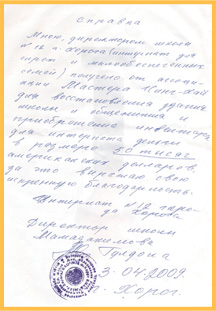 Справка
Мною, директором школы
№12 г. Хорога (интернат для
сирот и малообеспеченных
семей) получено от ассоци-
ации Мастера Чинг Хай
для восстановления здания
школы и общежития и
приобретение инвентаря
для интерната деньги
в размере 50 тысяч
американских долларов,
за что выражаю свою
искреннюю благодарность.
Интернат №12 горо-
да Хорога
Директор школы
Мамадазимова
Гулдона
3.04.2009.
г. Хорог.